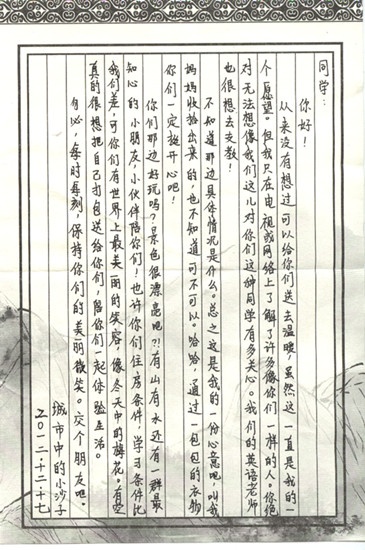 同学：
你好！
从来没有想过可以给你们送去温暖，虽然这一直是我的一
个愿望。但我只在电视或网络上了解了许多像你们一样的人。你绝
对无法想像我们这儿对你们这种同学有多关心。我们的英语老师
也很想去支教！
不知道那边具体情况是什么。总之这是我的一份心意吧，叫我
妈妈收拾出来的，也不知道可不可以。哈哈，通过一包包的衣物
你们一定挺开心吧！
你们那边好玩吗？景色很漂亮吧？！有山有水还有一群最
知心的小朋友，小伙伴陪你们！也许你们住房条件，学习条件比
我们差，可你们有世界上最美丽的笑容，像冬天中的梅花。有空
真的很想把自己打包送给你们，陪你们一起体验生活。
勿必，每时每刻，保持你们的美丽微笑。交个朋友吧。
城市中的小沙子
二〇一二十二十七